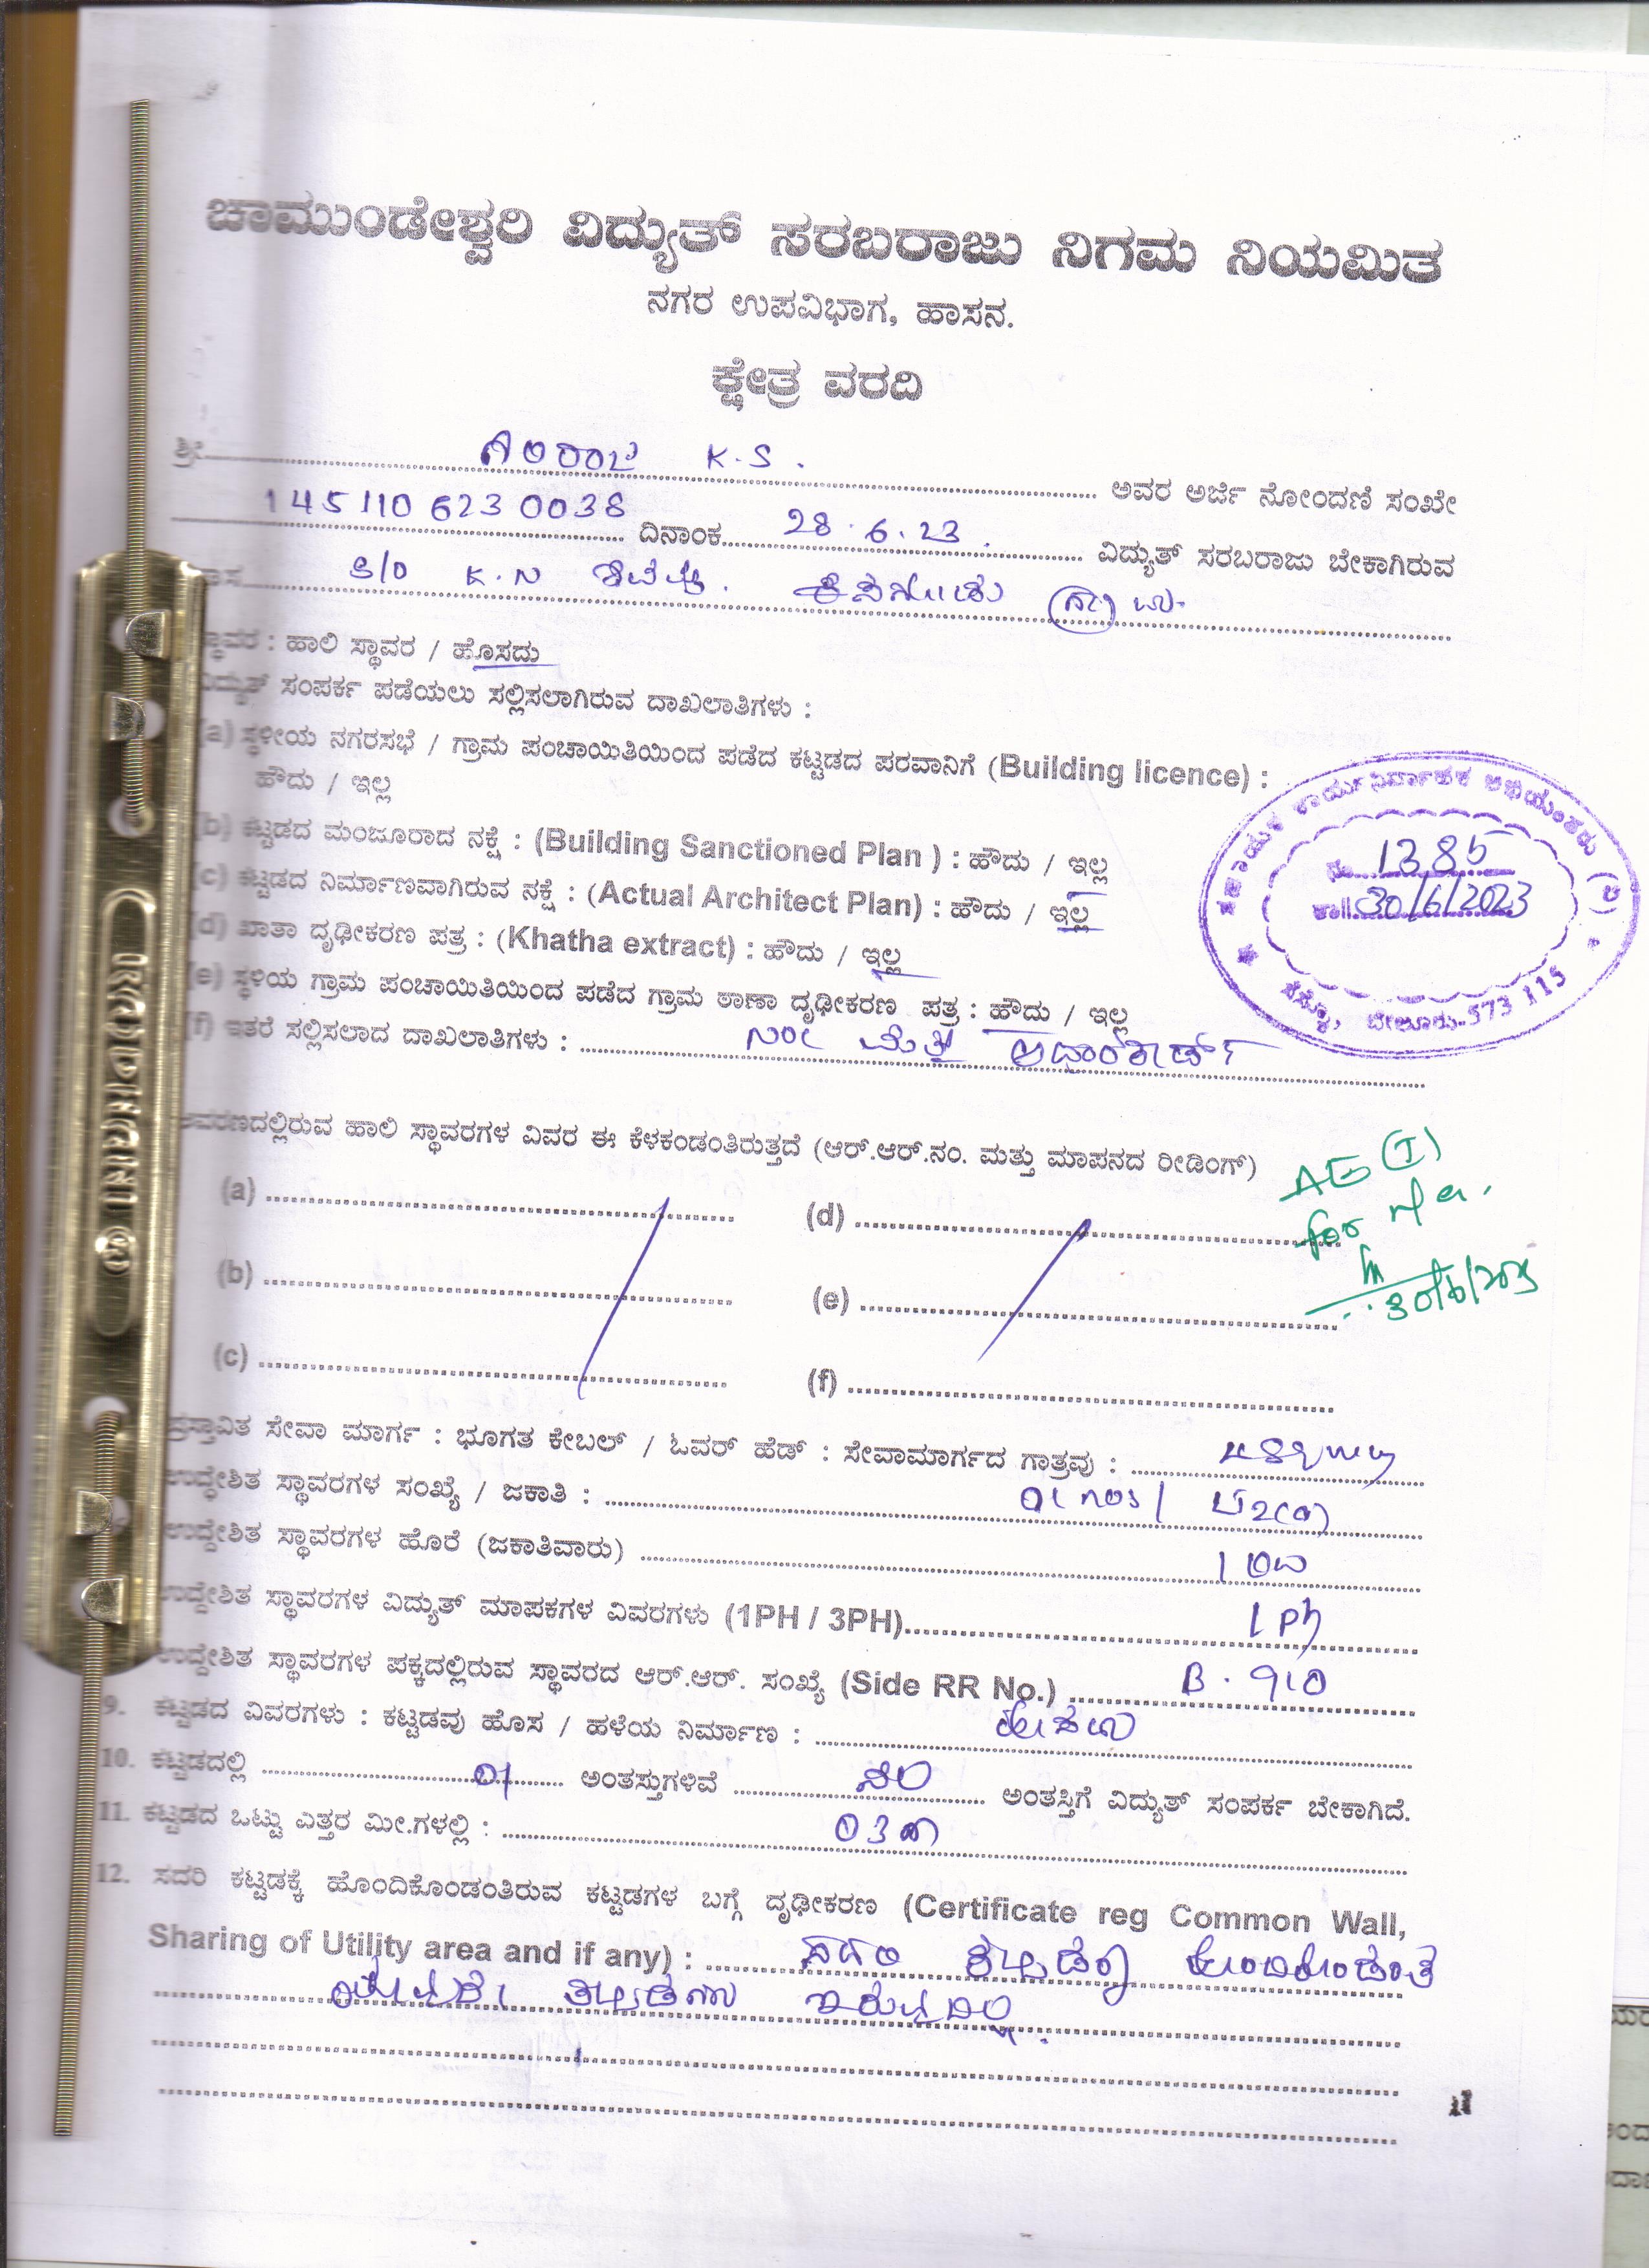 ಚಾಮುಂಡೇಶ್ವರಿ ವಿದ್ಯುತ್ ಸರಬರಾಜು ನಿಗಮ ನಿಯಮಿತ
ನಗರ ಉಪವಿಭಾಗ, ಹಾಸನ.
ಕ್ಷೇತ್ರ ವರದಿ
ಶ್ರೀ K.S. ಅವರ ಅರ್ಜಿ ನೋಂದಣಿ ಸಂಖೇ
145110 6230038 ದಿನಾಂಕ 28.6.23. ವಿದ್ಯುತ್ ಸರಬರಾಜು ಬೇಕಾಗಿರುವ
S/O K.N
ಸ್ಥಾವರ : ಹಾಲಿ ಸ್ಥಾವರ / ಹೊಸದು
ವಿದ್ಯುತ್ ಸಂಪರ್ಕ ಪಡೆಯಲು ಸಲ್ಲಿಸಲಾಗಿರುವ ದಾಖಲಾತಿಗಳು :
(a) ಸ್ಥಳೀಯ ನಗರಸಭೆ / ಗ್ರಾಮ ಪಂಚಾಯಿತಿಯಿಂದ ಪಡೆದ ಕಟ್ಟಡದ ಪರವಾನಿಗೆ (Building licence) :
ಹೌದು / ಇಲ್ಲ
(b) ಕಟ್ಟಡದ ಮಂಜೂರಾದ ನಕ್ಷೆ : (Building Sanctioned Plan ) : ಹೌದು / ಇಲ್ಲ
(c) ಕಟ್ಟಡದ ನಿರ್ಮಾಣವಾಗಿರುವ ನಕ್ಷೆ : (Actual Architect Plan) : ಹೌದು / ಇಲ್ಲ
(d) ಖಾತಾ ದೃಢೀಕರಣ ಪತ್ರ : (Khatha extract) : ಹೌದು / ಇಲ್ಲ
(e) ಸ್ಥಳಿಯ ಗ್ರಾಮ ಪಂಚಾಯಿತಿಯಿಂದ ಪಡೆದ ಗ್ರಾಮ ಠಾಣಾ ದೃಢೀಕರಣ ಪತ್ರ : ಹೌದು / ಇಲ್ಲ
(f) ಇತರೆ ಸಲ್ಲಿಸಲಾದ ದಾಖಲಾತಿಗಳು : NOC ಮತ್ತು ಆಧಾರ್‌ಕಾರ್ಡ್
ಸಹಾಯಕ ಕಾರ್ಯನಿರ್ವಾಹಕ ಅಭಿಯಂತರರು (ವಿ)
ನಂ. 1385
ದಿನಾಂಕ 30/6/2023
ಬೇಲೂರು-573 115
ಆವರಣದಲ್ಲಿರುವ ಹಾಲಿ ಸ್ಥಾವರಗಳ ವಿವರ ಈ ಕೆಳಕಂಡಂತಿರುತ್ತದೆ (ಆರ್.ಆರ್.ನಂ. ಮತ್ತು ಮಾಪನದ ರೀಡಿಂಗ್)
AE (I)
for n/a.
30/6/2023
(a) (d)
(b) (e)
(c) (f)
ಪ್ರಸ್ತಾವಿತ ಸೇವಾ ಮಾರ್ಗ : ಭೂಗತ ಕೇಬಲ್ / ಓವರ್ ಹೆಡ್ : ಸೇವಾಮಾರ್ಗದ ಗಾತ್ರವು :
ಉದ್ಧೇಶಿತ ಸ್ಥಾವರಗಳ ಸಂಖ್ಯೆ / ಜಕಾತಿ : 01 nos /
ಉದ್ದೇಶಿತ ಸ್ಥಾವರಗಳ ಹೊರೆ (ಜಕಾತಿವಾರು)
ಉದ್ದೇಶಿತ ಸ್ಥಾವರಗಳ ವಿದ್ಯುತ್ ಮಾಪಕಗಳ ವಿವರಗಳು (1PH / 3PH) 1 Ph
ಉದ್ದೇಶಿತ ಸ್ಥಾವರಗಳ ಪಕ್ಕದಲ್ಲಿರುವ ಸ್ಥಾವರದ ಆರ್.ಆರ್. ಸಂಖ್ಯೆ (Side RR No.) B.910
9. ಕಟ್ಟಡದ ವಿವರಗಳು : ಕಟ್ಟಡವು ಹೊಸ / ಹಳೆಯ ನಿರ್ಮಾಣ :
10. ಕಟ್ಟಡದಲ್ಲಿ 01 ಅಂತಸ್ತುಗಳಿವೆ ನೆಲ ಅಂತಸ್ತಿಗೆ ವಿದ್ಯುತ್ ಸಂಪರ್ಕ ಬೇಕಾಗಿದೆ.
11. ಕಟ್ಟಡದ ಒಟ್ಟು ಎತ್ತರ ಮೀ.ಗಳಲ್ಲಿ : 03 m
12. ಸದರಿ ಕಟ್ಟಡಕ್ಕೆ ಹೊಂದಿಕೊಂಡಂತಿರುವ ಕಟ್ಟಡಗಳ ಬಗ್ಗೆ ದೃಢೀಕರಣ (Certificate reg Common Wall,
Sharing of Utility area and if any) : ಸದರಿ ಕಟ್ಟಡಕ್ಕೆ ಹೊಂದಿಕೊಂಡಂತೆ
ಯಾವುದೇ ಕಟ್ಟಡಗಳು ಇರುವುದಿಲ್ಲ.